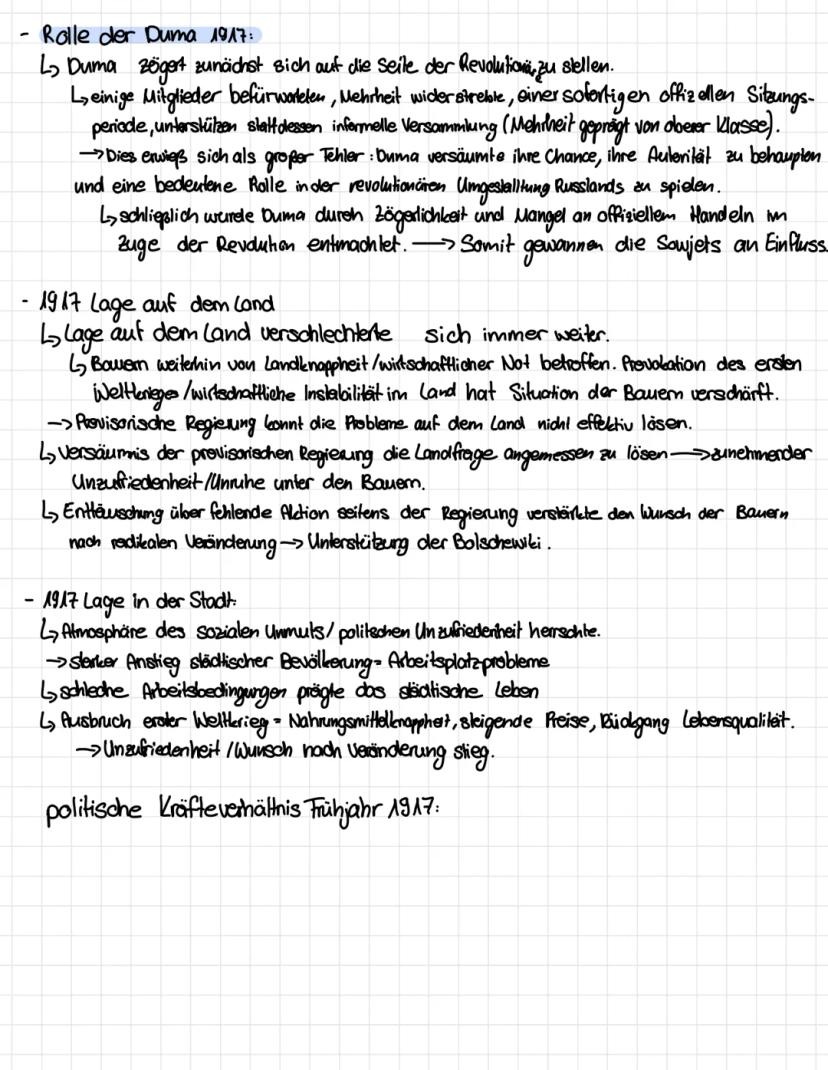 - Rolle der Duma 1917:
↳ Duma zögert zunächst sich auf die Seite der Revolutionär zu stellen.
↳ einige Mitglieder befürworteten, Mehrheit widerstrebte, einer sofortigen offiziellen Sitzungs-
periode, unterstützen stattdessen informelle Versammlung (Mehrheit geprägt von oberer Klasse).
→ Dies erwieß sich als großer Fehler: Duma versäumte ihre Chance, ihre Autorität zu behaupten
und eine bedeutene Rolle in der revolutionären Umgestalltung Russlands zu spielen.
↳ schließlich wurde Duma durch Zögerlichkeit und Mangel an offiziellem Handeln im
Zuge der Revolution entmachtet. → Somit gewannen die Sowjets an Einfluss.
- 1917 Lage auf dem Land
↳ Lage auf dem Land verschlechterte sich immer weiter.
↳ Bauern weiterhin von Landknappheit/wirtschaftlicher Not betroffen. Provokation des ersten
Weltkrieges/wirtschaftliche Instabilität im Land hat Situation der Bauern verschärft.
→ Provisorische Regierung konnt die Probleme auf dem Land nicht effektiv lösen.
↳ Versäumnis der provisorischen Regierung die Landfrage angemessen zu lösen → zunehmender
Unzufriedenheit/Unruhe unter den Bauern.
↳ Enttäuschung über fehlende Aktion seitens der Regierung verstärkte den Wunsch der Bauern
nach radikalen Veränderung → Unterstützung der Bolschewiki.
- 1917 Lage in der Stadt:
↳ Atmosphäre des sozialen Unmuts/politischen Unzufriedenheit herrschte.
→ starker Anstieg städtischer Bevölkerung = Arbeitsplatzprobleme
↳ schlechte Arbeitsbedingungen prägte das städtische Leben
↳ Ausbruch erster Weltkrieg = Nahrungsmittelknappheit, steigende Preise, Rückgang Lebensqualität.
→ Unzufriedenheit/Wunsch nach Veränderung stieg.
politische Kräfteverhältnis Frühjahr 1917: